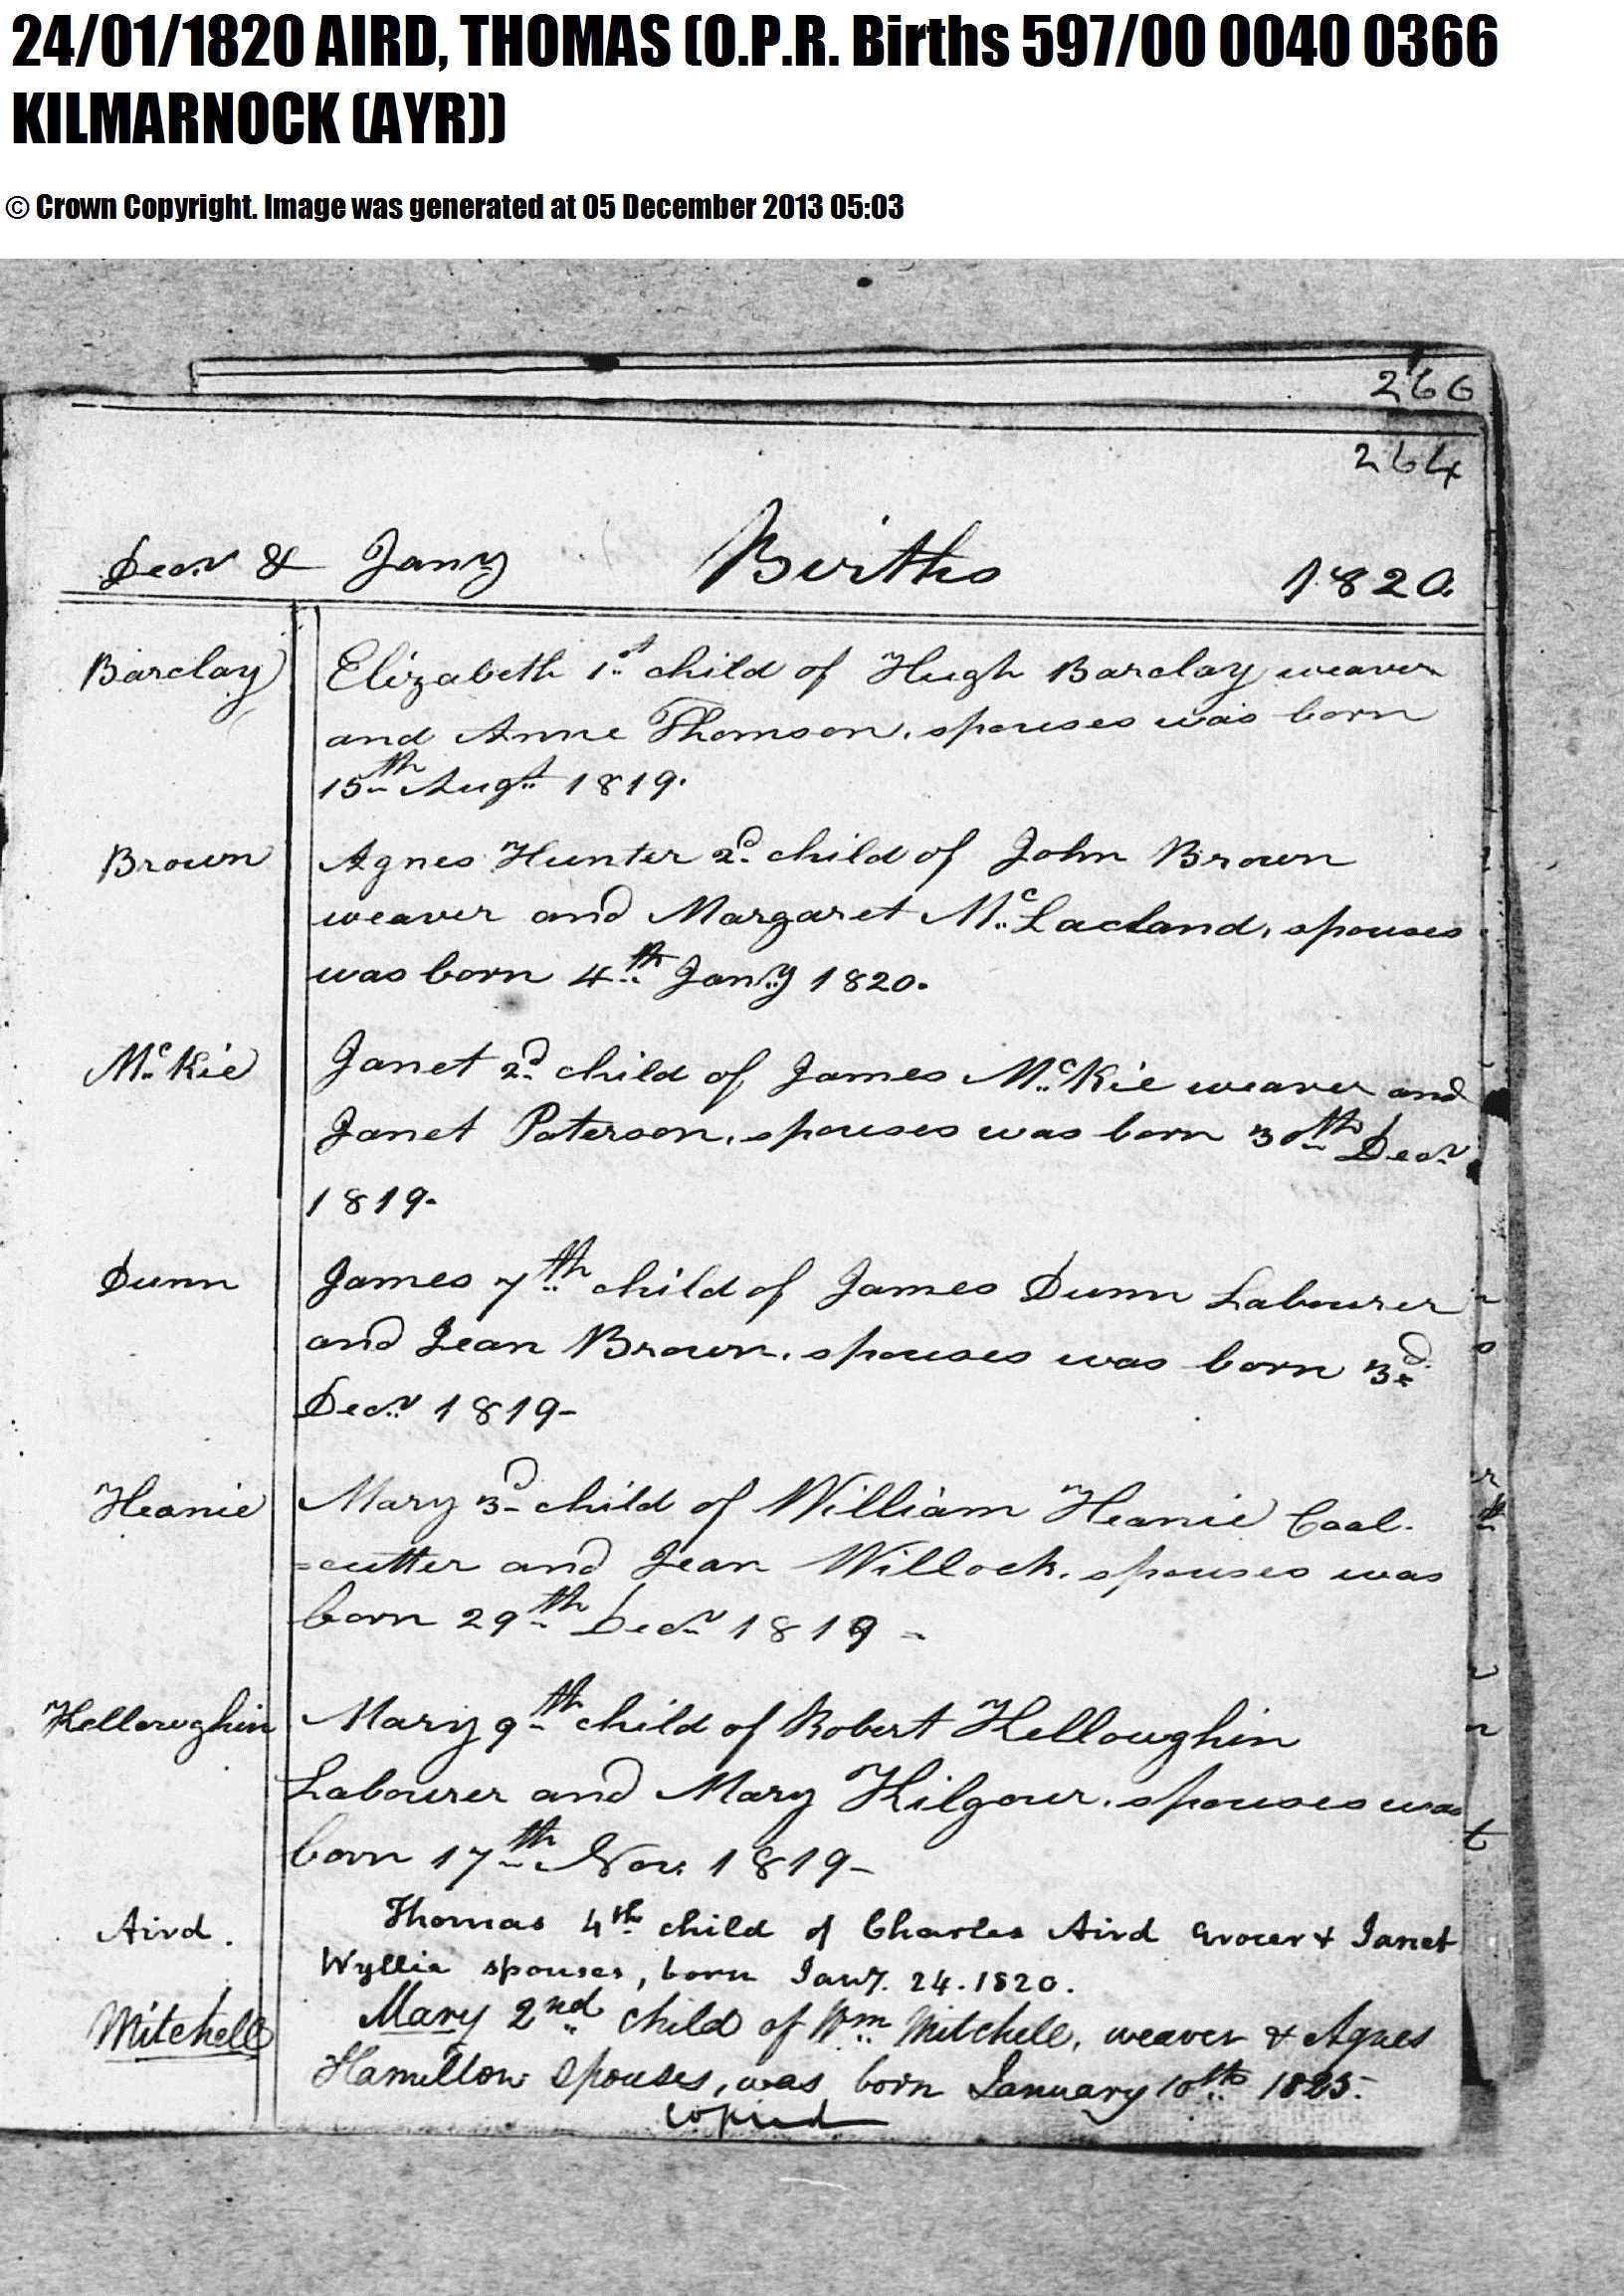 24/01/1820 AIRD, THOMAS (O.P.R. Births 597/00 0040 0366
KILMARNOCK (AYR))
© Crown Copyright. Image was generated at 05 December 2013 05:03
266
264
Decr & Jany Births 1820.
Barclay Elizabeth 1st child of Hugh Barclay weaver
and Anne Thomson, spouses was born
15th Augt 1819.
Brown Agnes Hunter 2d child of John Brown
weaver and Margaret McLacland, spouses
was born 4th Jany 1820.
McKie Janet 2d child of James McKie weaver and
Janet Paterson, spouses was born 30th Decr
1819.
Dunn James 7th child of James Dunn Labourer
and Jean Brown, spouses was born 3d
Decr 1819-
Heanie Mary 3d child of William Heanie Coal-
=cutter and Jean Willock, spouses was
born 29th Decr 1819-
Helloughin Mary 9th child of Robert Helloughin
Labourer and Mary Kilgour, spouses was
born 17th Nov. 1819-
Aird. Thomas 4th child of Charles Aird Grocer & Janet
Wyllie spouses, born Jany. 24. 1820.
Mitchell Mary 2nd child of Wm Mitchell, weaver & Agnes
Hamilton spouses, was born January 10th 1825.
copied